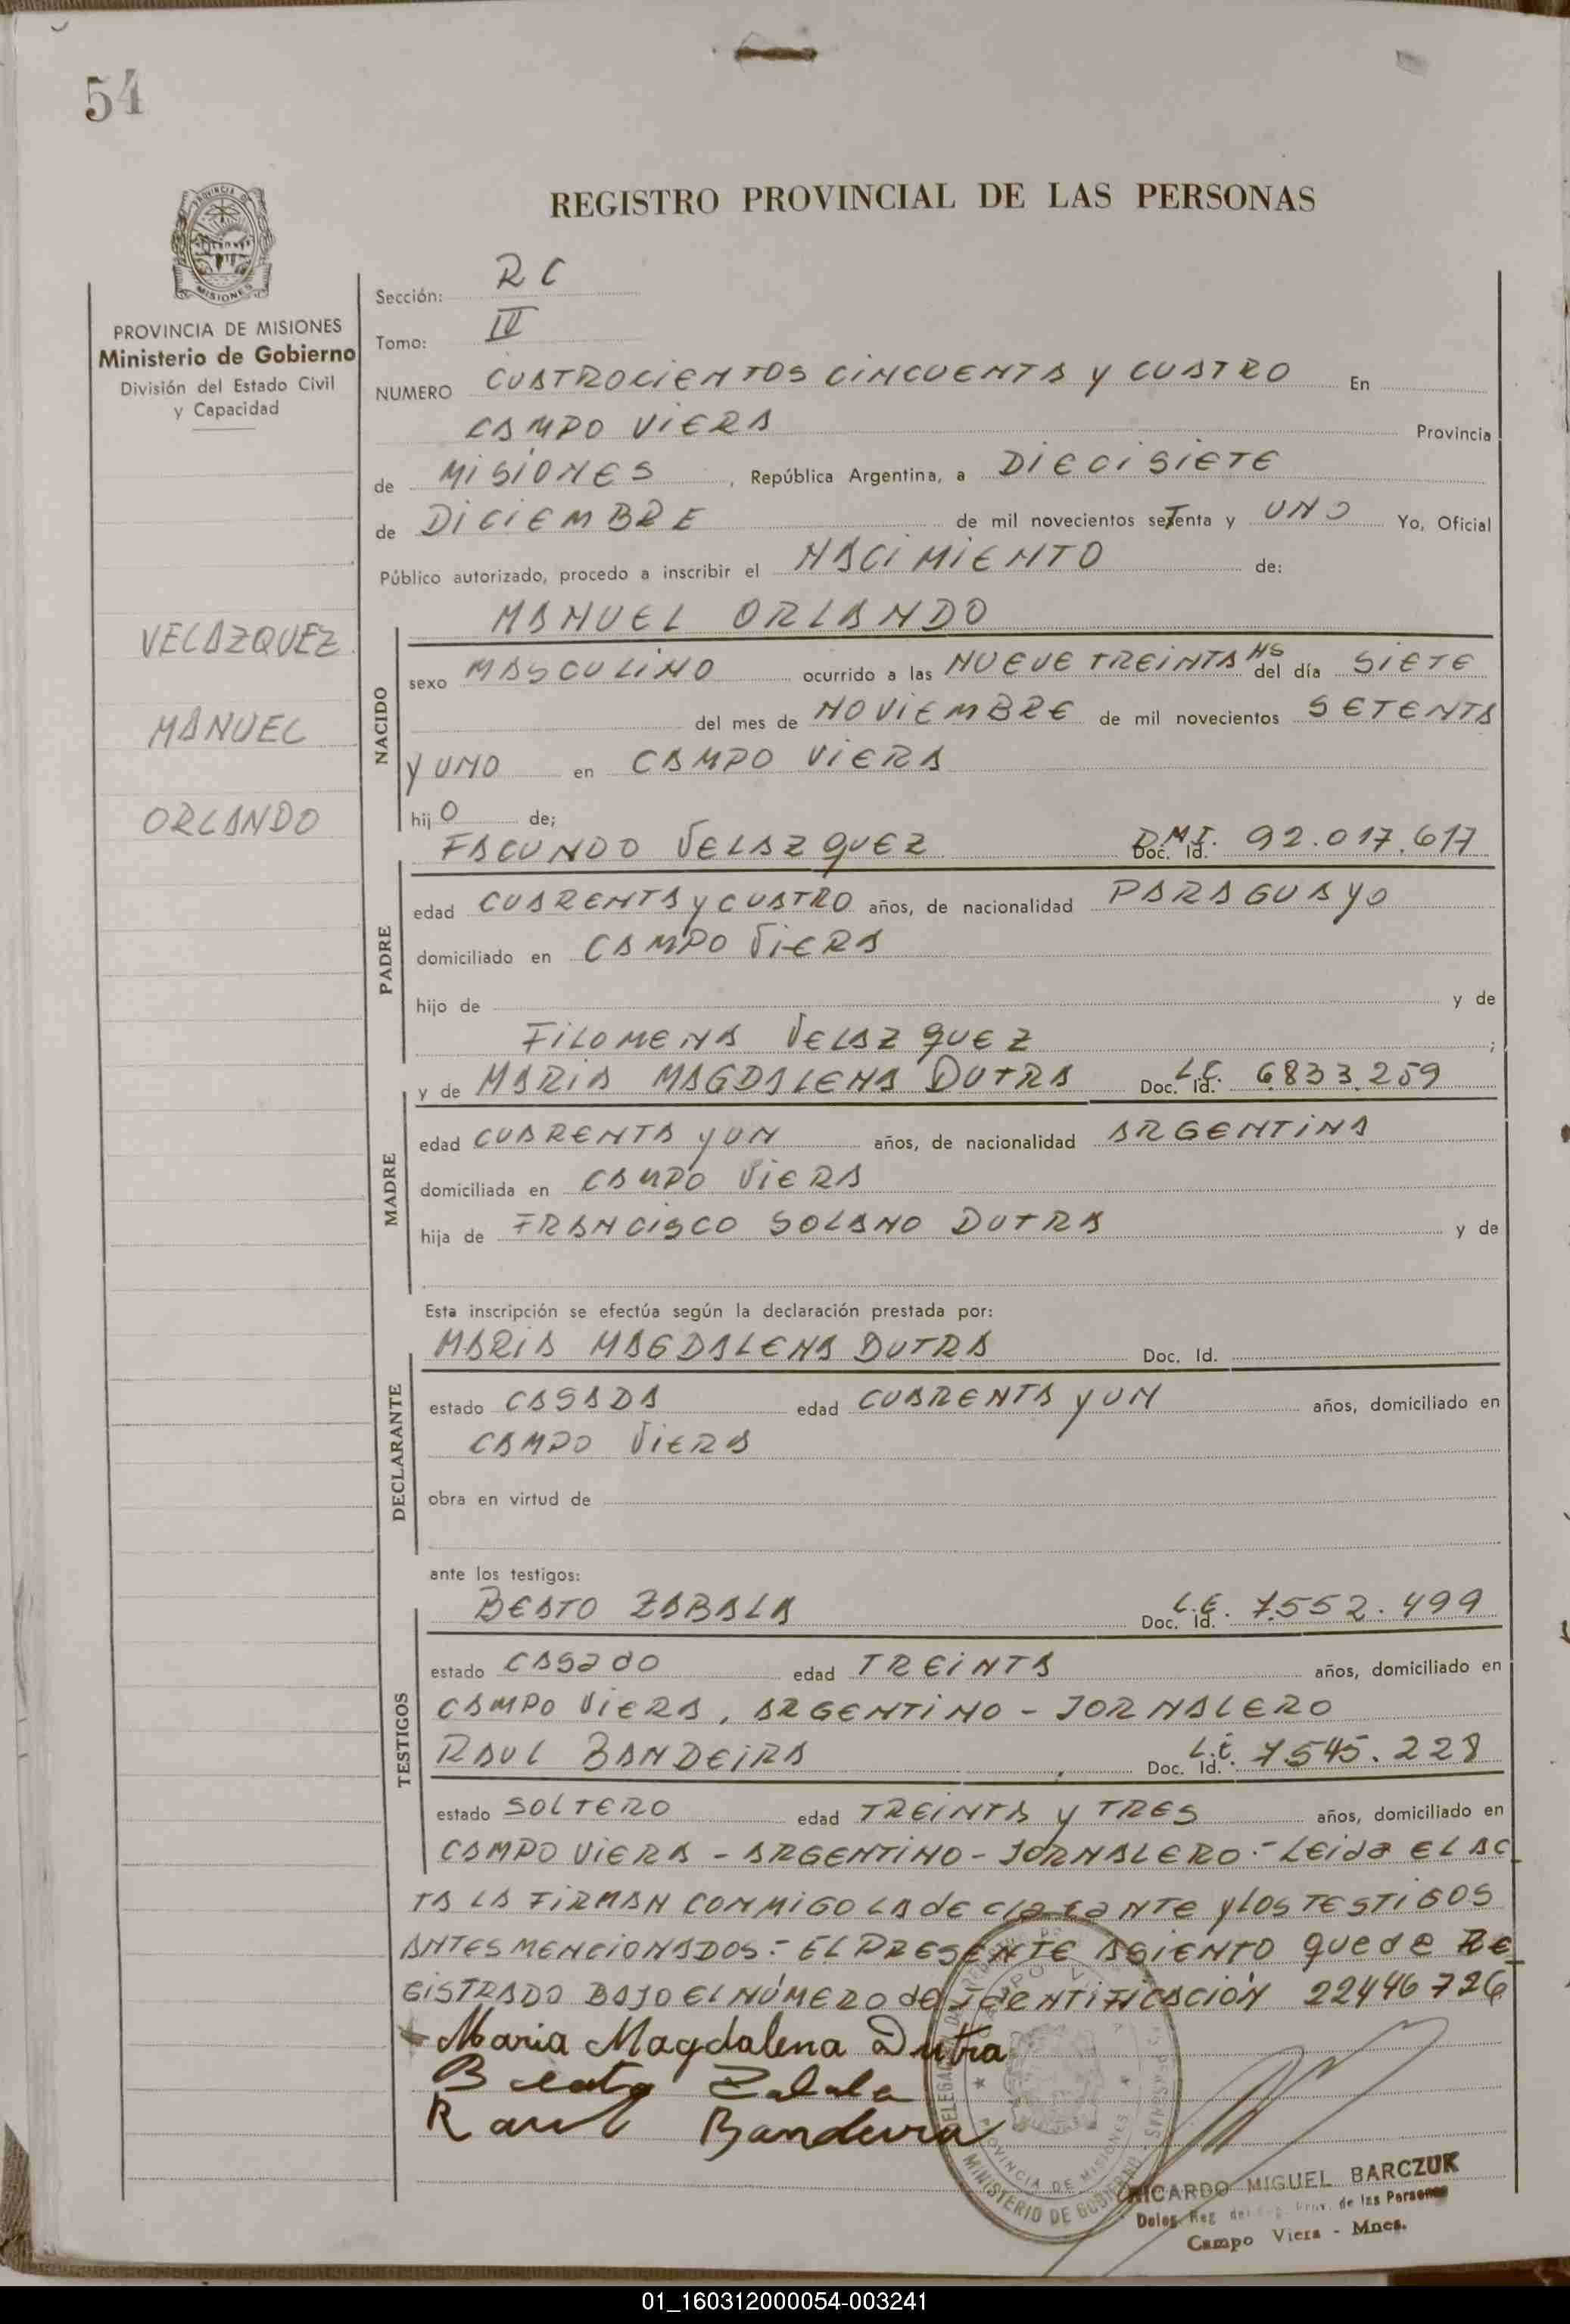 54
REGISTRO PROVINCIAL DE LAS PERSONAS
PROVINCIA DE MISIONES
Ministerio de Gobierno
División del Estado Civil
y Capacidad
VELAZQUEZ
MANUEL
ORLANDO
Sección: RC
Tomo: IV
NUMERO CUATROCIENTOS CINCUENTA Y CUATRO En
CAMPO VIERA Provincia
de MISIONES, República Argentina, a DIECISIETE
de DICIEMBRE de mil novecientos seTenta y UNO Yo, Oficial
Público autorizado, procedo a inscribir el NACIMIENTO de:
MANUEL ORLANDO
NACIDO
sexo MASCULINO ocurrido a las NUEVE TREINTA HS del día SIETE
del mes de NOVIEMBRE de mil novecientos SETENTA
Y UNO en CAMPO VIERA
hijO de;
FACUNDO VELAZQUEZ Doc. Id. D.N.I. 92.017.617
PADRE
edad CUARENTA y CUATRO años, de nacionalidad PARAGUAYO
domiciliado en CAMPO VIERA
hijo de y de
FILOMENA VELAZQUEZ ;
y de MARIA MAGDALENA DUTRA Doc. Id. L.C. 6833.259
MADRE
edad CUARENTA y UN años, de nacionalidad ARGENTINA
domiciliada en CAMPO VIERA
hija de FRANCISCO SOLANO DUTRA y de
Esta inscripción se efectúa según la declaración prestada por:
MARIA MAGDALENA DUTRA Doc. Id.
DECLARANTE
estado CASADA edad CUARENTA y UN años, domiciliado en
CAMPO VIERA
obra en virtud de
ante los testigos:
BEATO ZABALA Doc. Id. L.E. 7.552.499
TESTIGOS
estado CASADO edad TREINTA años, domiciliado en
CAMPO VIERA, ARGENTINO - JORNALERO
RAUL BANDEIRA Doc. Id. L.E. 7545.228
estado SOLTERO edad TREINTA y TRES años, domiciliado en
CAMPO VIERA - ARGENTINO - JORNALERO.- LEIDA EL AC_
TA LA FIRMAN CONMIGO LA DECLARANTE y LOS TESTIGOS
ANTES MENCIONADOS.- EL PRESENTE ASIENTO QUEDE RE_
GISTRADO BAJO EL NÚMERO de IDENTIFICACIÓN 22446726
Maria Magdalena Dutra
Beato Zabala
Raul Bandeira
MINISTERIO DE GOBIERNO
PROVINCIA DE MISIONES
RICARDO MIGUEL BARCZUK
Deleg. Reg. del Prov. de las Personas
Campo Viera - Mnes.
01_160312000054-003241